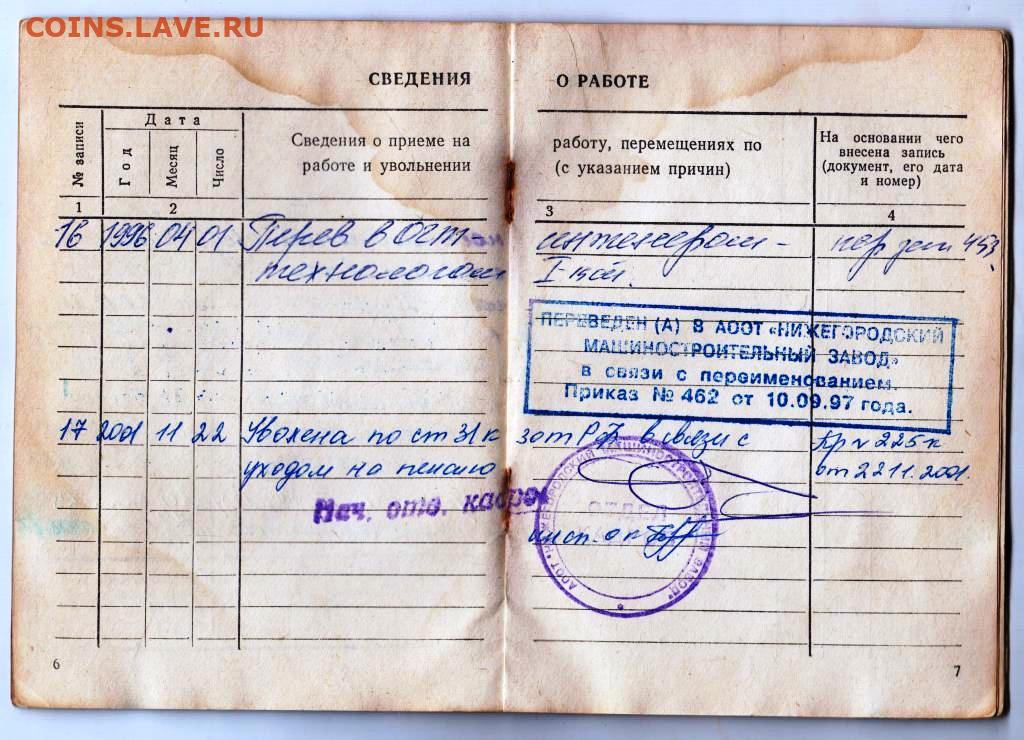 COINS.LAVE.RU
СВЕДЕНИЯ О РАБОТЕ
№ записи
Дата
Год
Месяц
Число
Сведения о приеме на работу, перемещениях по
работе и увольнении (с указанием причин)
На основании чего
внесена запись
(документ, его дата
и номер)
1 2 3 4
16 1996 04 01 Перев в Остт инженером-
технологом I-кат.
ПЕРЕВЕДЕН (А) В АООТ «НИЖЕГОРОДСКИЙ
МАШИНОСТРОИТЕЛЬНЫЙ ЗАВОД»
в связи с переименованием.
Приказ № 462 от 10.09.97 года.
17 2001 11 22 Уволена по ст 31 к зот РФ в связи с Пр № 225к
уходом на пенсию от 22 11.2001.
Нач. отд. кадров
АООТ "НИЖЕГОРОДСКИЙ МАШИНОСТРОИТЕЛЬНЫЙ ЗАВОД"
ОТДЕЛ
инсп ок
6 7